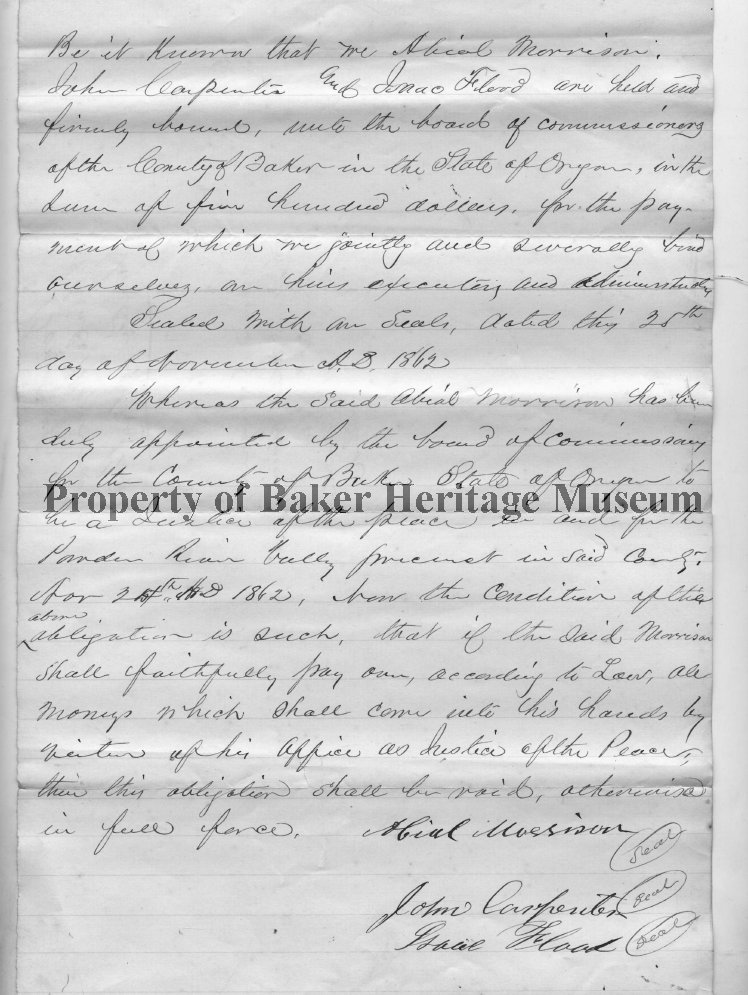 Be it Known that we Abial Morrison.
John Carpenter and Isaac Flood are held and
firmly bound, unto the board of commissioners
of the County of Baker in the State of Oregon, in the
sum of five hundred dollars. for the pay-
ment of which we jointly and severally bind
ourselves, our heirs executors and administrators
Sealed with our Seals, dated this 25th
day of November A.D. 1862
Whereas the Said Abial Morrison has been
duly appointed by the board of Commissioners
for the County of Baker State of Oregon to
Property of Baker Heritage Museum
be a Justice of the peace in and for the
Powder River Valley precinct in said County.
Nov 24th AD 1862, Now the Condition of this
above
obligation is such, that if the said Morrison
shall faithfully pay over, according to Law, all
moneys which shall come into his hands by
virtue of his office as Justice of the Peace,
then this obligation shall be void, otherwise
in full force. Abial Morrison
Seal
John Carpenter Seal
Isaac Flood Seal